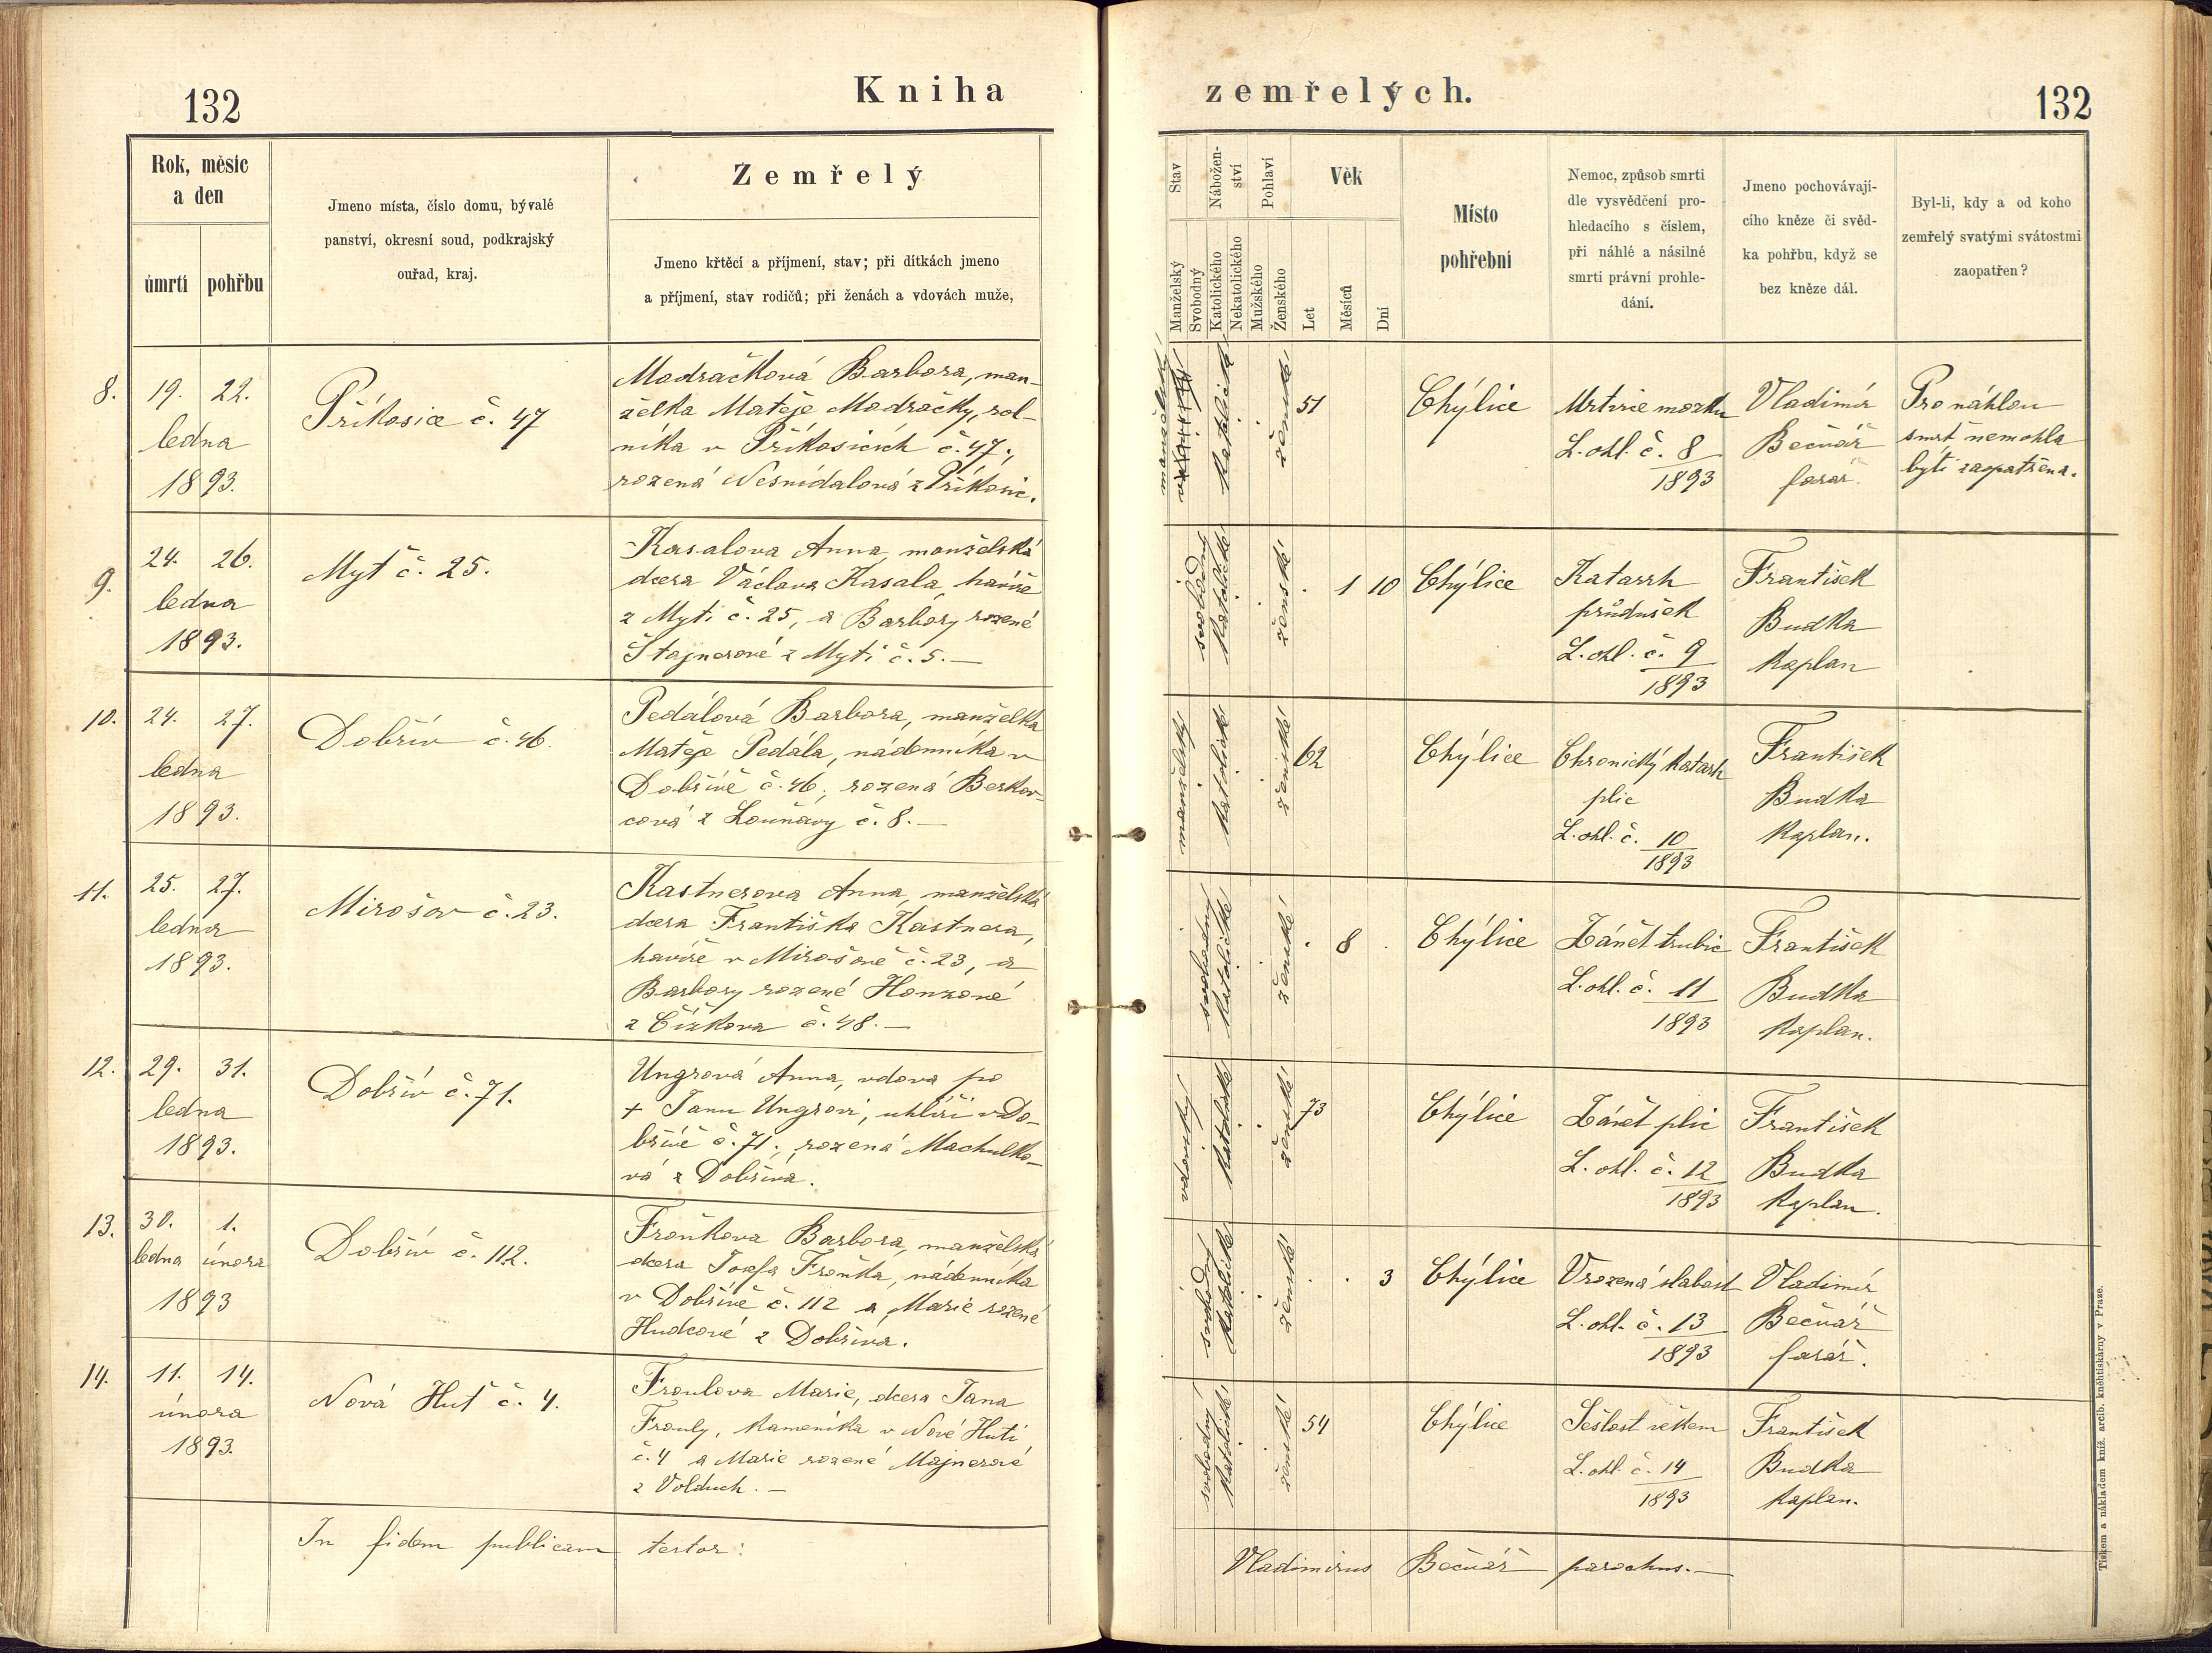 132
Kniha
zemřelých.
132
Rok, měsíc
a den
úmrtí
pohřbu
Jmeno místa, číslo domu, bývalé
panství, okresní soud, podkrajský
ouřad, kraj.
Zemřelý
Jmeno křtěcí a příjmení, stav; při dítkách jmeno
a příjmení, stav rodičů; při ženách a vdovách muže,
Stav
Manželský
Svobodný
Nábožen-
ství
Katolického
Nekatolického
Pohlaví
Mužského
Ženského
Věk
Let
Měsíců
Dní
Místo
pohřební
Nemoc, způsob smrti
dle vysvědčení pro-
hledacího s číslem,
při náhlé a násilné
smrti právní prohle-
dání.
Jmeno pochovávají-
cího kněze či svěd-
ka pohřbu, když se
bez kněze dál.
Byl-li, kdy a od koho
zemřelý svatými svátostmi
zaopatřen?
8.
19. 22.
ledna
1893.
Příkosice č. 47
Modračková Barbora, man-
želka Matěje Modračky, rol-
níka v Příkosicích č. 47.,
rozená Nesnídalová z Příkosic.
manželský
katolické
ženské
51
Chýlice
Mrtvice mozku
L. ohl. č. 8
1893
Vladimír
Bečvář
farář.
Pro náhlou
smrt nemohla
býti zaopatřena.
9.
24. 26.
ledna
1893.
Myť č. 25.
Kasalova Anna, manželská
dcera Václava Kasala, havíře
z Myti č. 25, a Barbory rozené
Štajnerové z Myti č. 5. —
svobodný
katolické
ženské
. 1 10
Chýlice
Katarrh
průdušek
L. ohl. č. 9
1893
František
Budka
kaplan
10.
24. 27.
ledna
1893.
Dobřív č. 46.
Pedálová Barbora, manželka
Matěje Pedála, nádenníka v
Dobřívě č. 46., rozená Berkov-
cová z Louňavy č. 8. —
manželský
katolické
ženské
62
Chýlice
Chronický katarh
plic
L. ohl. č. 10
1893
František
Budka
kaplan.
11.
25. 27.
ledna
1893.
Mirošov č. 23.
Kastnerova Anna, manželská
dcera Františka Kastnera,
havíře v Mirošově č. 23, a
Barbory rozené Honzové
z Čížkova č. 48. —
svobodný
katolické
ženské
. 8 .
Chýlice
Zánět trubic
L. ohl. č. 11
1893
František
Budka
kaplan.
12.
29. 31.
ledna
1893.
Dobřív č. 71.
Ungrová Anna, vdova po
+ Janu Ungrovi, uhlíři v Do-
břívě č. 71., rozená Machulko-
vá z Dobříva.
vdovský
katolické
ženské
73
Chýlice
Zánět plic
L. ohl. č. 12
1893
František
Budka
kaplan.
13.
30. 1.
ledna února
1893
Dobřív č. 112.
Froňkova Barbora, manželská
dcera Josefa Froňka, nádenníka
v Dobřívě č. 112 a Marie rozené
Hudcové z Dobříva.
svobodný
katolické
ženské
. . 3
Chýlice
Vrozená slabost
L. ohl. č. 13
1893
Vladimír
Bečvář
farář.
14.
11. 14.
února
1893.
Nová Huť č. 4.
Froulova Marie, dcera Jana
Frouly, kameníka v Nové Huti
č. 4 a Marie rozené Majnerové
z Volduch. —
svobodný
katolické
ženské
54
Chýlice
Sešlost věkem
L. ohl. č. 14
1893
František
Budka
kaplan.
In fidem publicam testor:
Vladimirus Bečvář parochus. —
Tiskem a nákladem kníž. arcib. kněhtiskárny v Praze.